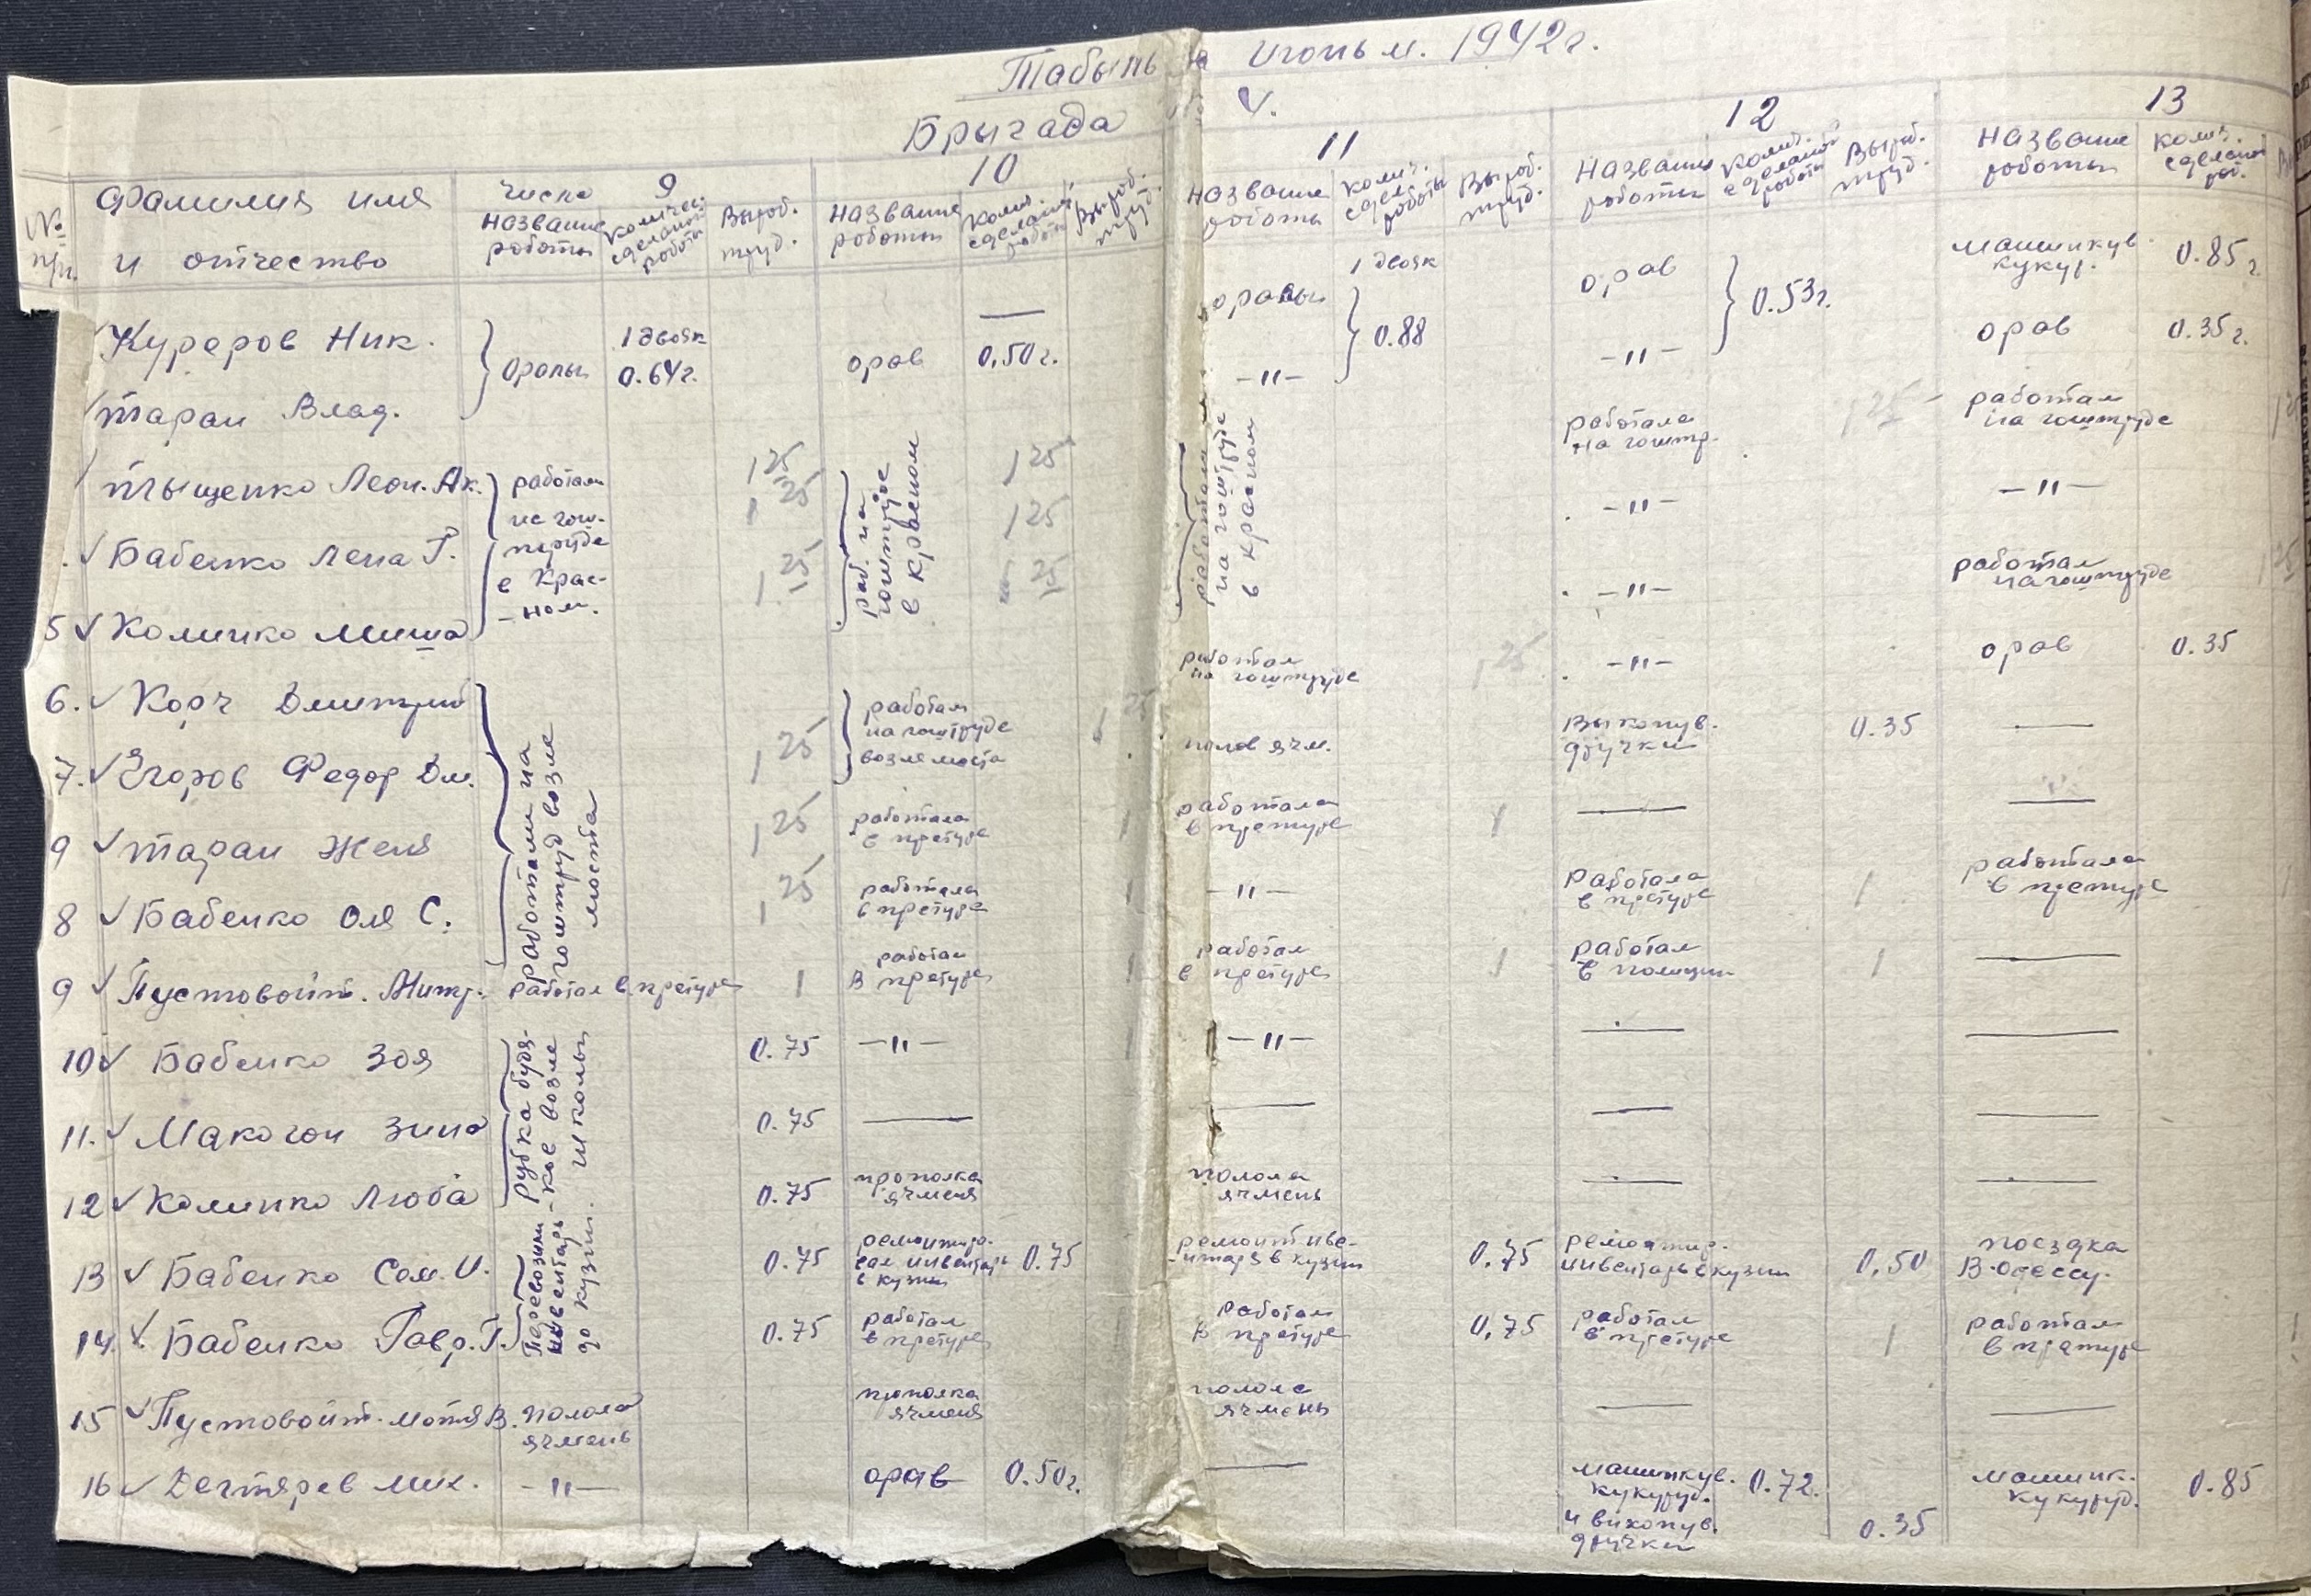 Табыль на июнь м. 1942г.
Брыгада V.
№ п/п. Фамилия имя и отчество
числа 9 10 11 12 13
название роботы количес. сделаной роботы Выроб. труд.
название роботы колич. сделаной роботы Выроб. труд.
название роботы колич. сдел. роботы Выроб. труд.
название роботы колич. сделаной роботы Выроб. труд.
название роботы колич. сделаной роб.
Куреров Ник. оропы 1 двояк 0.64г. — оравы 1 двояк 0.88 орав 0.53г. машинкув. кукур. 0.85г.
Таран Влад. орав 0.50г. -"- -"- орав 0.35г.
Тыщенко Леон. Ак. работали на гош-труде в Крас-ном. 1,25 раб. на гоштруде в Красном 1,25 работали на гоштруде в Красном работала на гоштр. 1,25 работал на гоштруде
Бабенко Лена Г. 1,25 1,25 -"- -"-
5 Колинко Миша 1,25 1,25 -"- работал на гоштруде 1,25
6. Корч Дмитрий работали на гоштруд возле моста работал на гоштруде возле моста 1,25 работал на гоштруде 1,25 -"- орав 0.35
7. Егоров Федор Дм. 1,25 полов ячм. Выкопув. дручки 0.35 —
9 Таран Женя 1,25 работала в претуре 1 работала в претуре 1 — —
8 Бабенко Оля С. 1,25 работала в претуре 1 -"- работала в претуре 1 работала в претуре
9 Пустовойт. Митр. работал в претуре 1 работал в претуре 1 работал в претуре 1 работал в полиции 1 —
10 Бабенко Зоя рубка будя-кое возле школы 0.75 -"- 1 -"- — —
11. Макогон Зина 0.75 — — — —
12 Колинко Люба 0.75 прополка ячменя полола ячмень — —
13 Бабенко Сем. И. Перевозили инвентарь до кузни. 0.75 ремонтиро-вал инвентарь в кузни 0.75 ремонт инве-нтаря в кузни 0.75 ремонтир. инвентарь в кузни 0.50 поездка В Одессу.
14. Бабенко Гавр. Г. 0.75 работал в претуре работал в претуре 0.75 работал в претуре 1 работал в претуре 1
15 Пустовойт. Мотя В. полола ячмень прополка ячменя полола ячмень — —
16 Дегтярев Мих. -"- орав 0.50г. — машинкув. кукуруд. 0.72. и викопув. дручки 0.35 машинк. кукуруд. 0.85